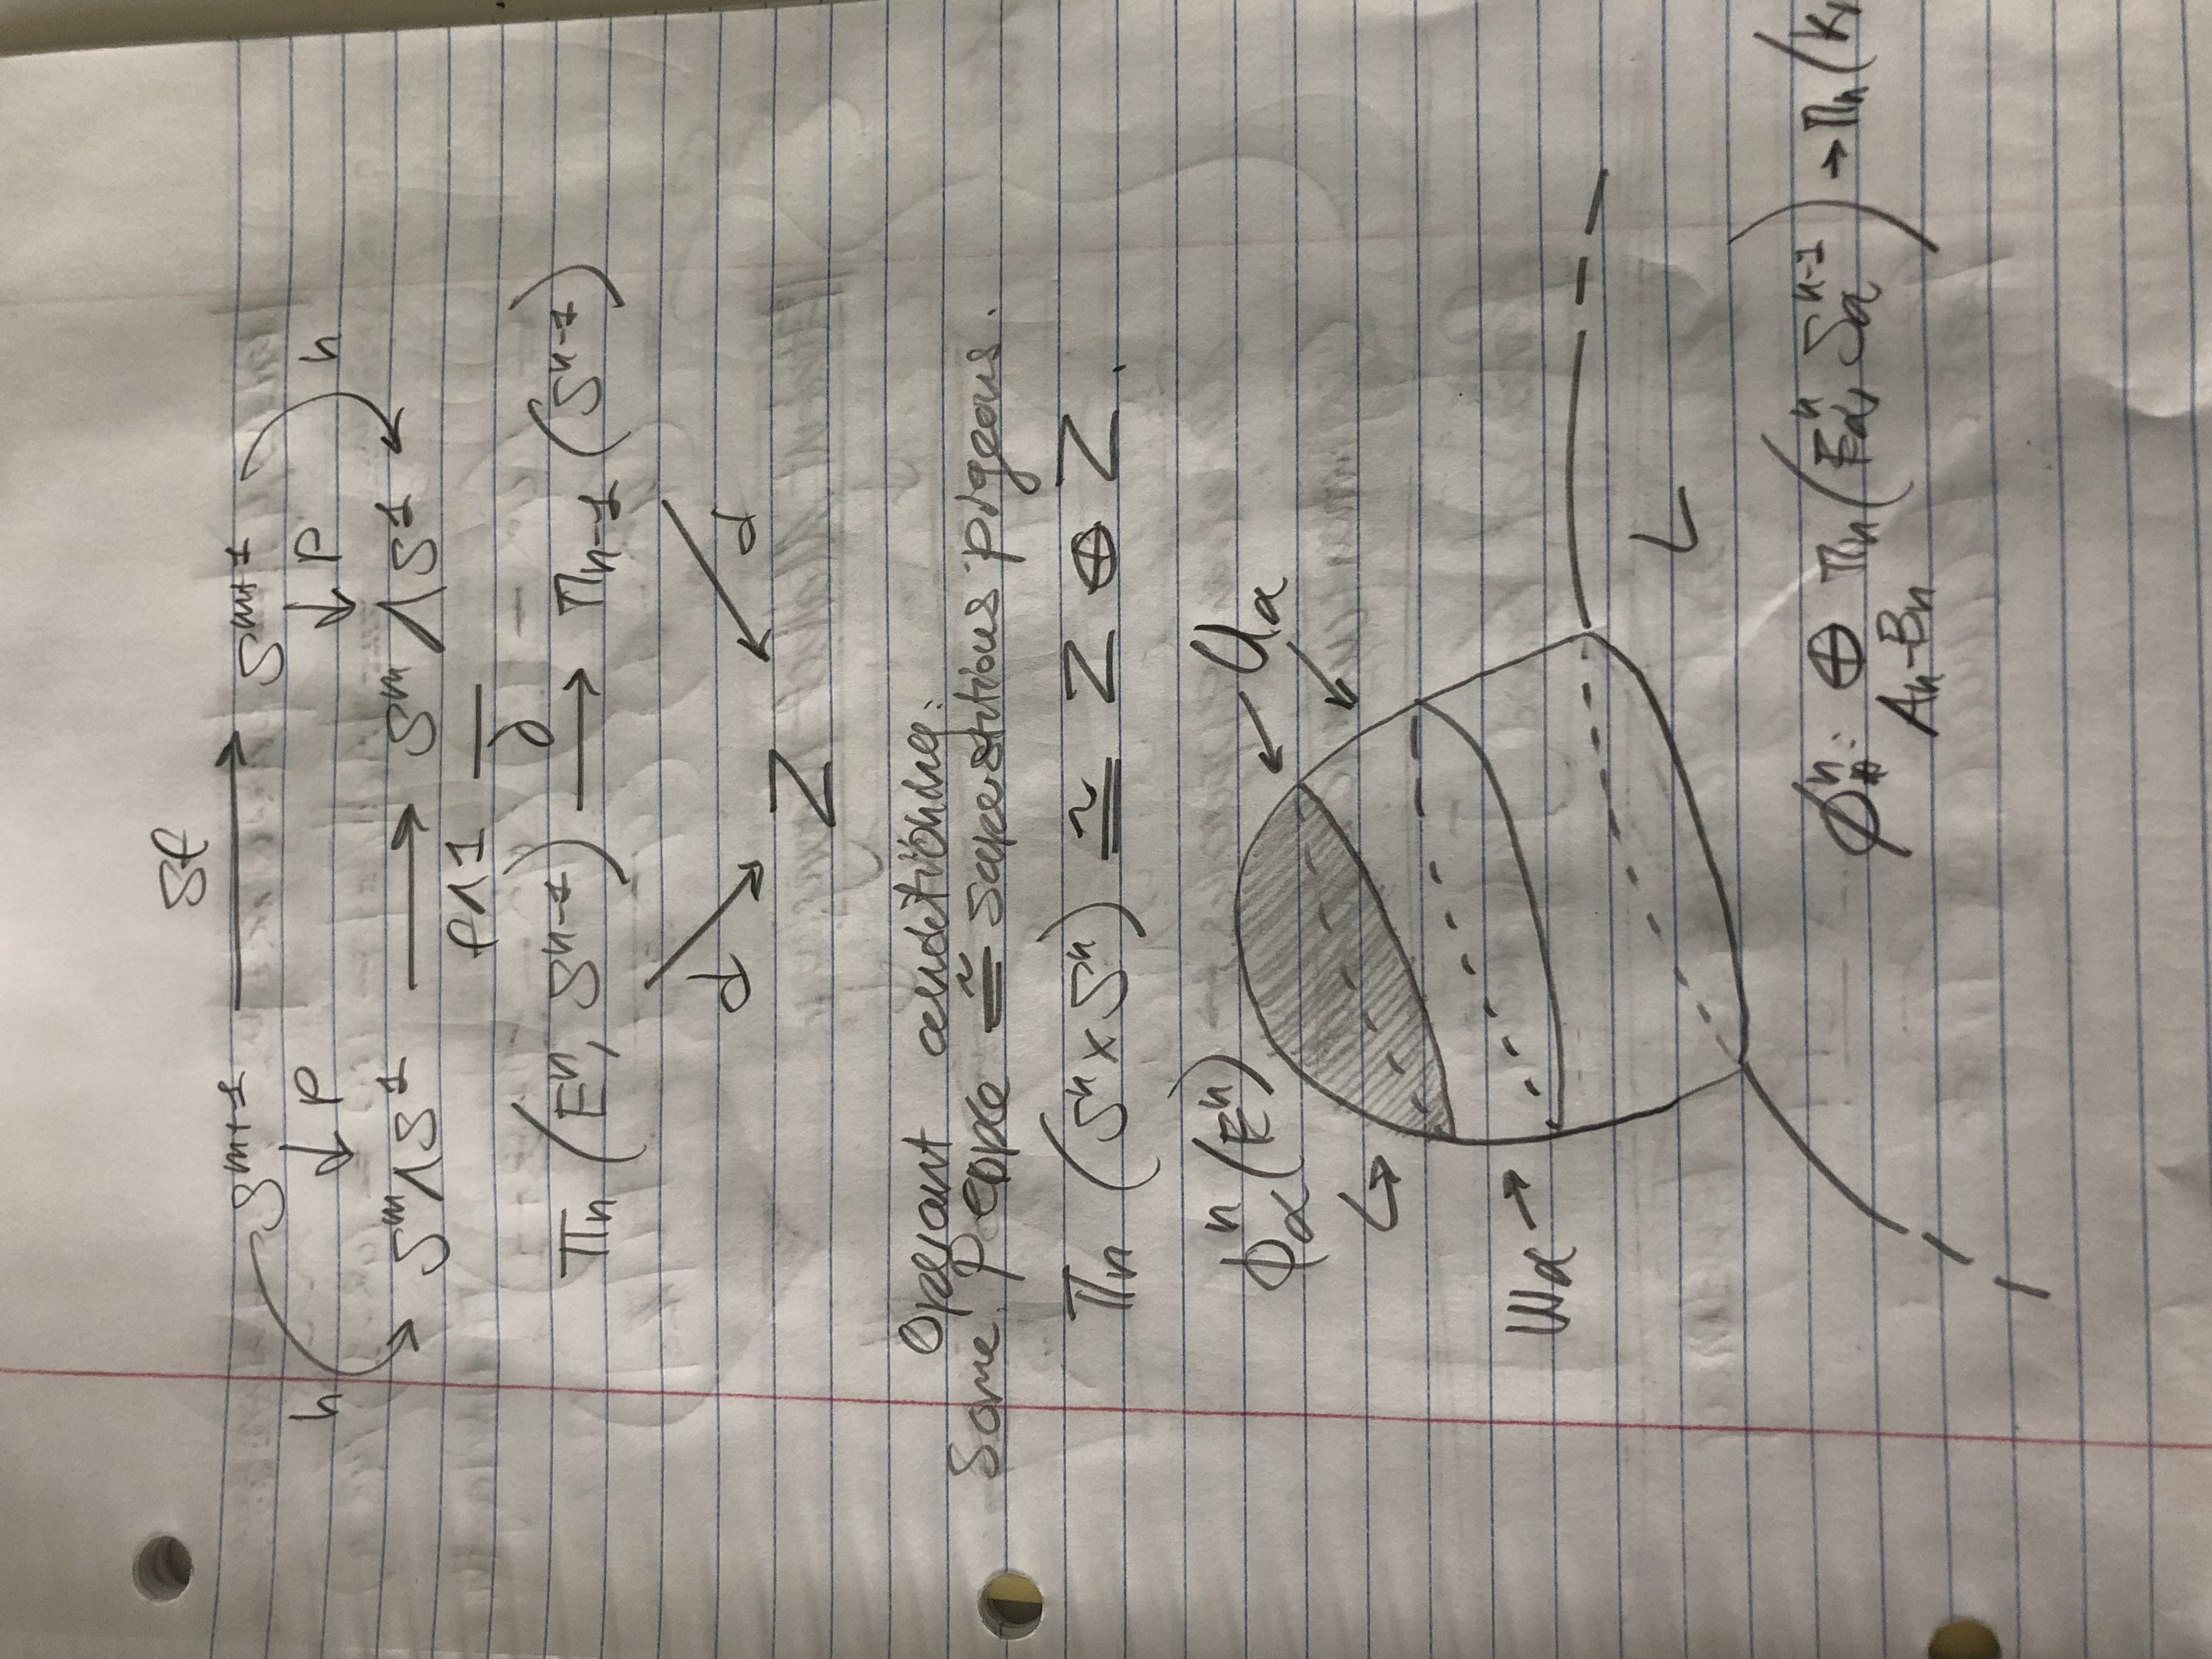 Sf
S^{m+1} → S^{m+1}
h ↓ P ↓ P h
S^m ∧ S^1 → S^m ∧ S^1
f∧1
∂
π_n (E^n, S^{n-1}) → π_{n-1} (S^{n-1})
d d
Z
Operant conditioning:
Some People ≅ superstitious pigeons.
π_n (S^n × S^n) ≅ Z ⊕ Z.
ϕ_α^n (E^n) U_α
W_α →
L
ϕ_*^n: ⊕ π_n (E_α^n, S_α^{n-1}) → π_n (K,
A_n-B_n